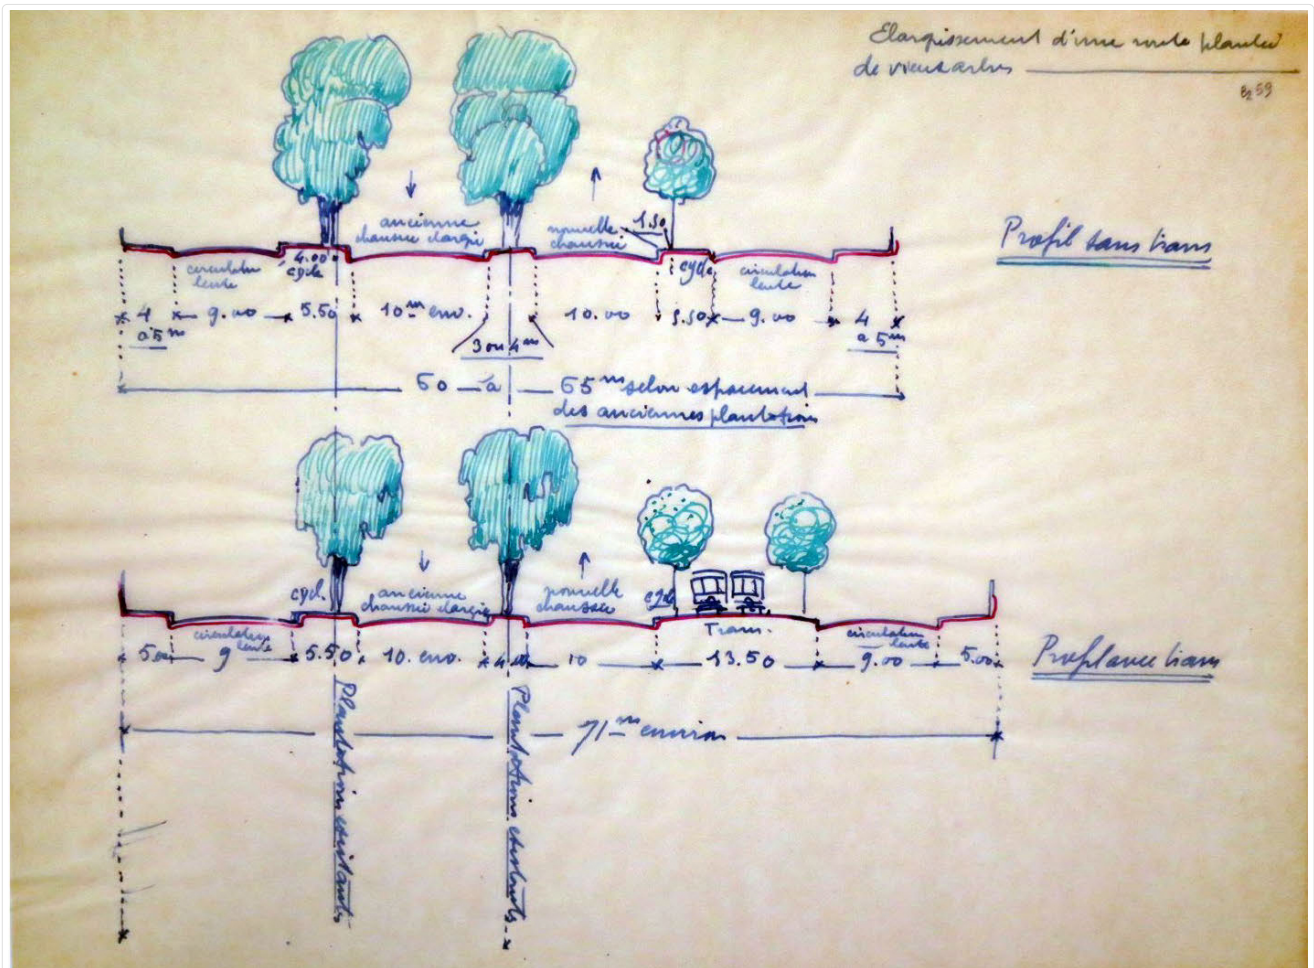 Elargissement d'une route plantée
de vieux arbres
59
ancienne
chaussée élargie
nouvelle
chaussée
1.50
Profil sans tram
circulation
lente
4.00
cycle
cycle
circulation
lente
4
à 5 m
9.00
5.50
10 m env.
3 ou 4 m
10.00
5.50
9.00
4
à 5 m
60 à 65 m selon espacement
des anciennes plantations
cycl.
ancienne
chaussée élargie
nouvelle
chaussée
cycl
circulation
lente
Tram.
circulation
lente
Profil avec tram
5.00
9
5.50
10. env.
4.00
10
13.50
9.00
5.00
71 m environ
Plantations existantes
Plantations existantes